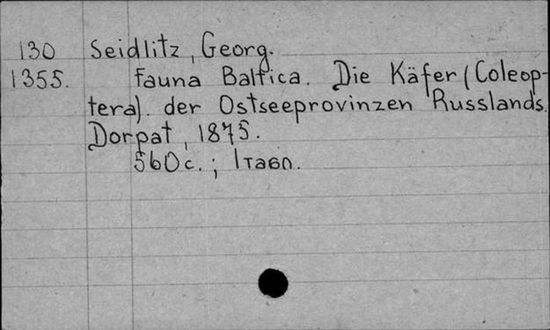 130 Seidlitz, Georg.
1355. Fauna Baltica. Die Käfer (Coleop-
tera). der Ostseeprovinzen Russlands.
Dorpat, 1875.
560с.; 1табл.